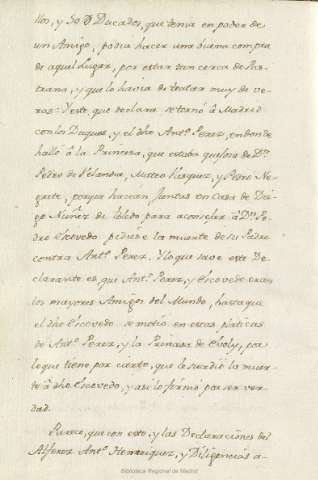 llos, y 30 @ Ducados, que tenia en poder de
un Amigo, podia hacer una buena compra
de aquel Lugar, por estar tan cerca de Pas-
trana, y que lo havia de tratar muy de ve-
ras: Y este, que declara se tornó à Madrid
con los Duques, y el dho Antº. Perez, en donde
halló à la Princesa, que estaba quejosa de Dn.
Pedro de Velandia, Matheo Vazquez, y Pedro Ne-
grete, porque hacian Juntas en Casa de Die-
go Nuñez de Toledo para aconsejar à Dn. Pe-
dro Escovedo pidiese la muerte de su Padre
contra Antº. Perez. Y lo que save este De-
clarante es, que Antº. Perez, y Escovedo eran
los mayores Amigos del Mundo, hasta que
el dho Escovedo se metió en estas platicas
de Antº. Perez, y la Princesa de Eboly, por
lo que tiene por cierto, que le sucedió la muer-
te à dho Escovedo, y asi lo firmó por ser ver-
dad.
Parece, que con esto, y las Declaraciones del
Alferez Antº. Henriquez, y Diligencias a-
Biblioteca Regional de Madrid